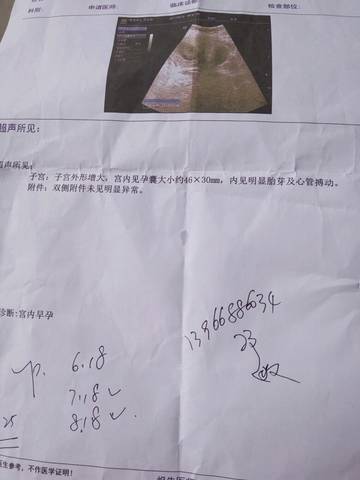 科别:
申请医师:
临床诊断
检查部位:
超声所见:
超声所见:
子宫: 子宫外形增大, 宫内见孕囊大小约46×30mm, 内见明显胎芽及心管搏动。
附件: 双侧附件未见明显异常。
诊断:宫内早孕
6.18
7.18
8.18
25
13966886634
生参考, 不作医学证明!
报告医师